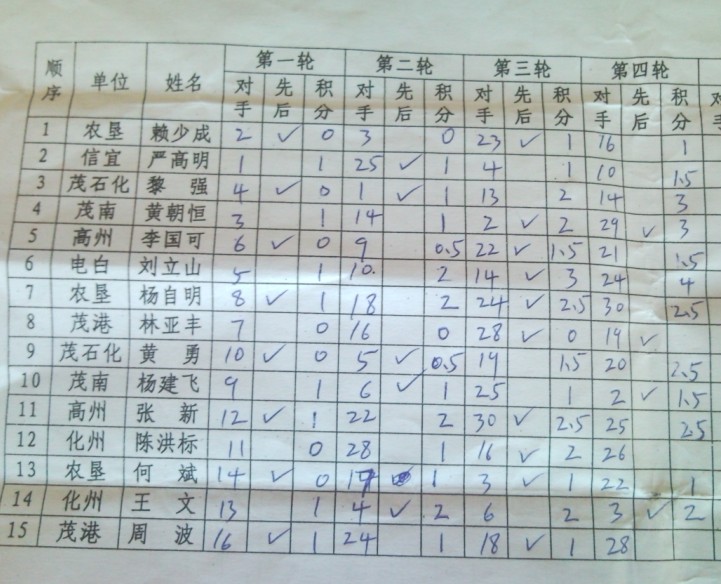 顺序 单位 姓名 第一轮 第二轮 第三轮 第四轮
对手 先后 积分 对手 先后 积分 对手 先后 积分 对手 先后 积分 对手
1 农垦 赖少成 2 ✓ 0 3 0 23 ✓ 1 16 1
2 信宜 严高明 1 1 25 ✓ 1 4 1 10 1.5
3 茂石化 黎强 4 ✓ 0 1 ✓ 1 13 2 14 3
4 茂南 黄朝恒 3 1 14 1 2 ✓ 2 29 ✓ 3
5 高州 李国可 6 ✓ 0 9 0.5 22 ✓ 1.5 21 1.5
6 电白 刘立山 5 1 10 2 14 ✓ 3 24 4
7 农垦 杨自明 8 ✓ 1 18 2 24 ✓ 2.5 30 2.5
8 茂港 林亚丰 7 0 16 0 28 ✓ 0 19 ✓
9 茂石化 黄勇 10 ✓ 0 5 ✓ 0.5 19 1.5 20 2.5
10 茂南 杨建飞 9 1 6 ✓ 1 25 1 2 ✓ 1.5
11 高州 张新 12 ✓ 1 22 2 30 ✓ 2.5 25 2.5
12 化州 陈洪标 11 0 28 1 16 ✓ 2 26
13 农垦 何斌 14 ✓ 0 1 3 ✓ 1 22 1
14 化州 王文 13 1 4 ✓ 2 6 2 3 ✓ 2
15 茂港 周波 16 ✓ 1 24 1 18 ✓ 1 28